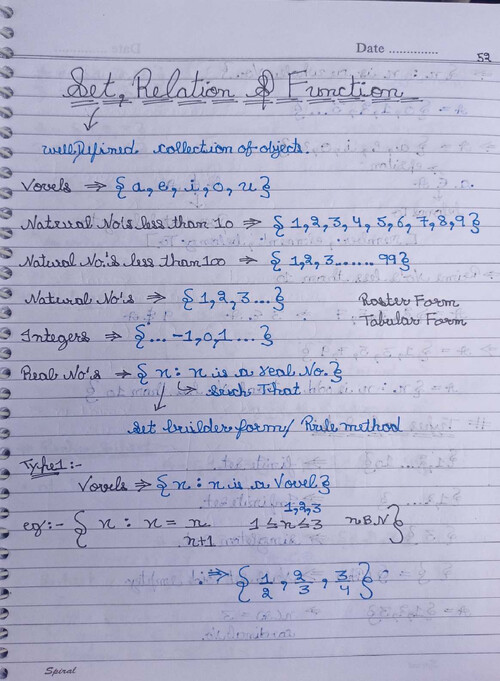 Date ..............
52
Set, Relation & Function
well Defined collection of objects.
Vovels ⇒ {a, e, i, o, u}
Natural No's less than 10 ⇒ {1,2,3,4,5,6,7,8,9}
Natural No.'s less than 100 ⇒ {1,2,3......99}
Natural No's ⇒ {1,2,3...}
Roster Form
Tabular Form
Integers ⇒ {...-1,0,1...}
Real No's ⇒ {x : x is a real No.}
↳ Such That
Set builder form / Rule method
Type 1:-
Vovels ⇒ {x : x is a Vovel}
1,2,3
eg:- {x : x = n/n+1 1≤n≤3 n B N}
⇒ {1/2, 2/3, 3/4}
Spiral